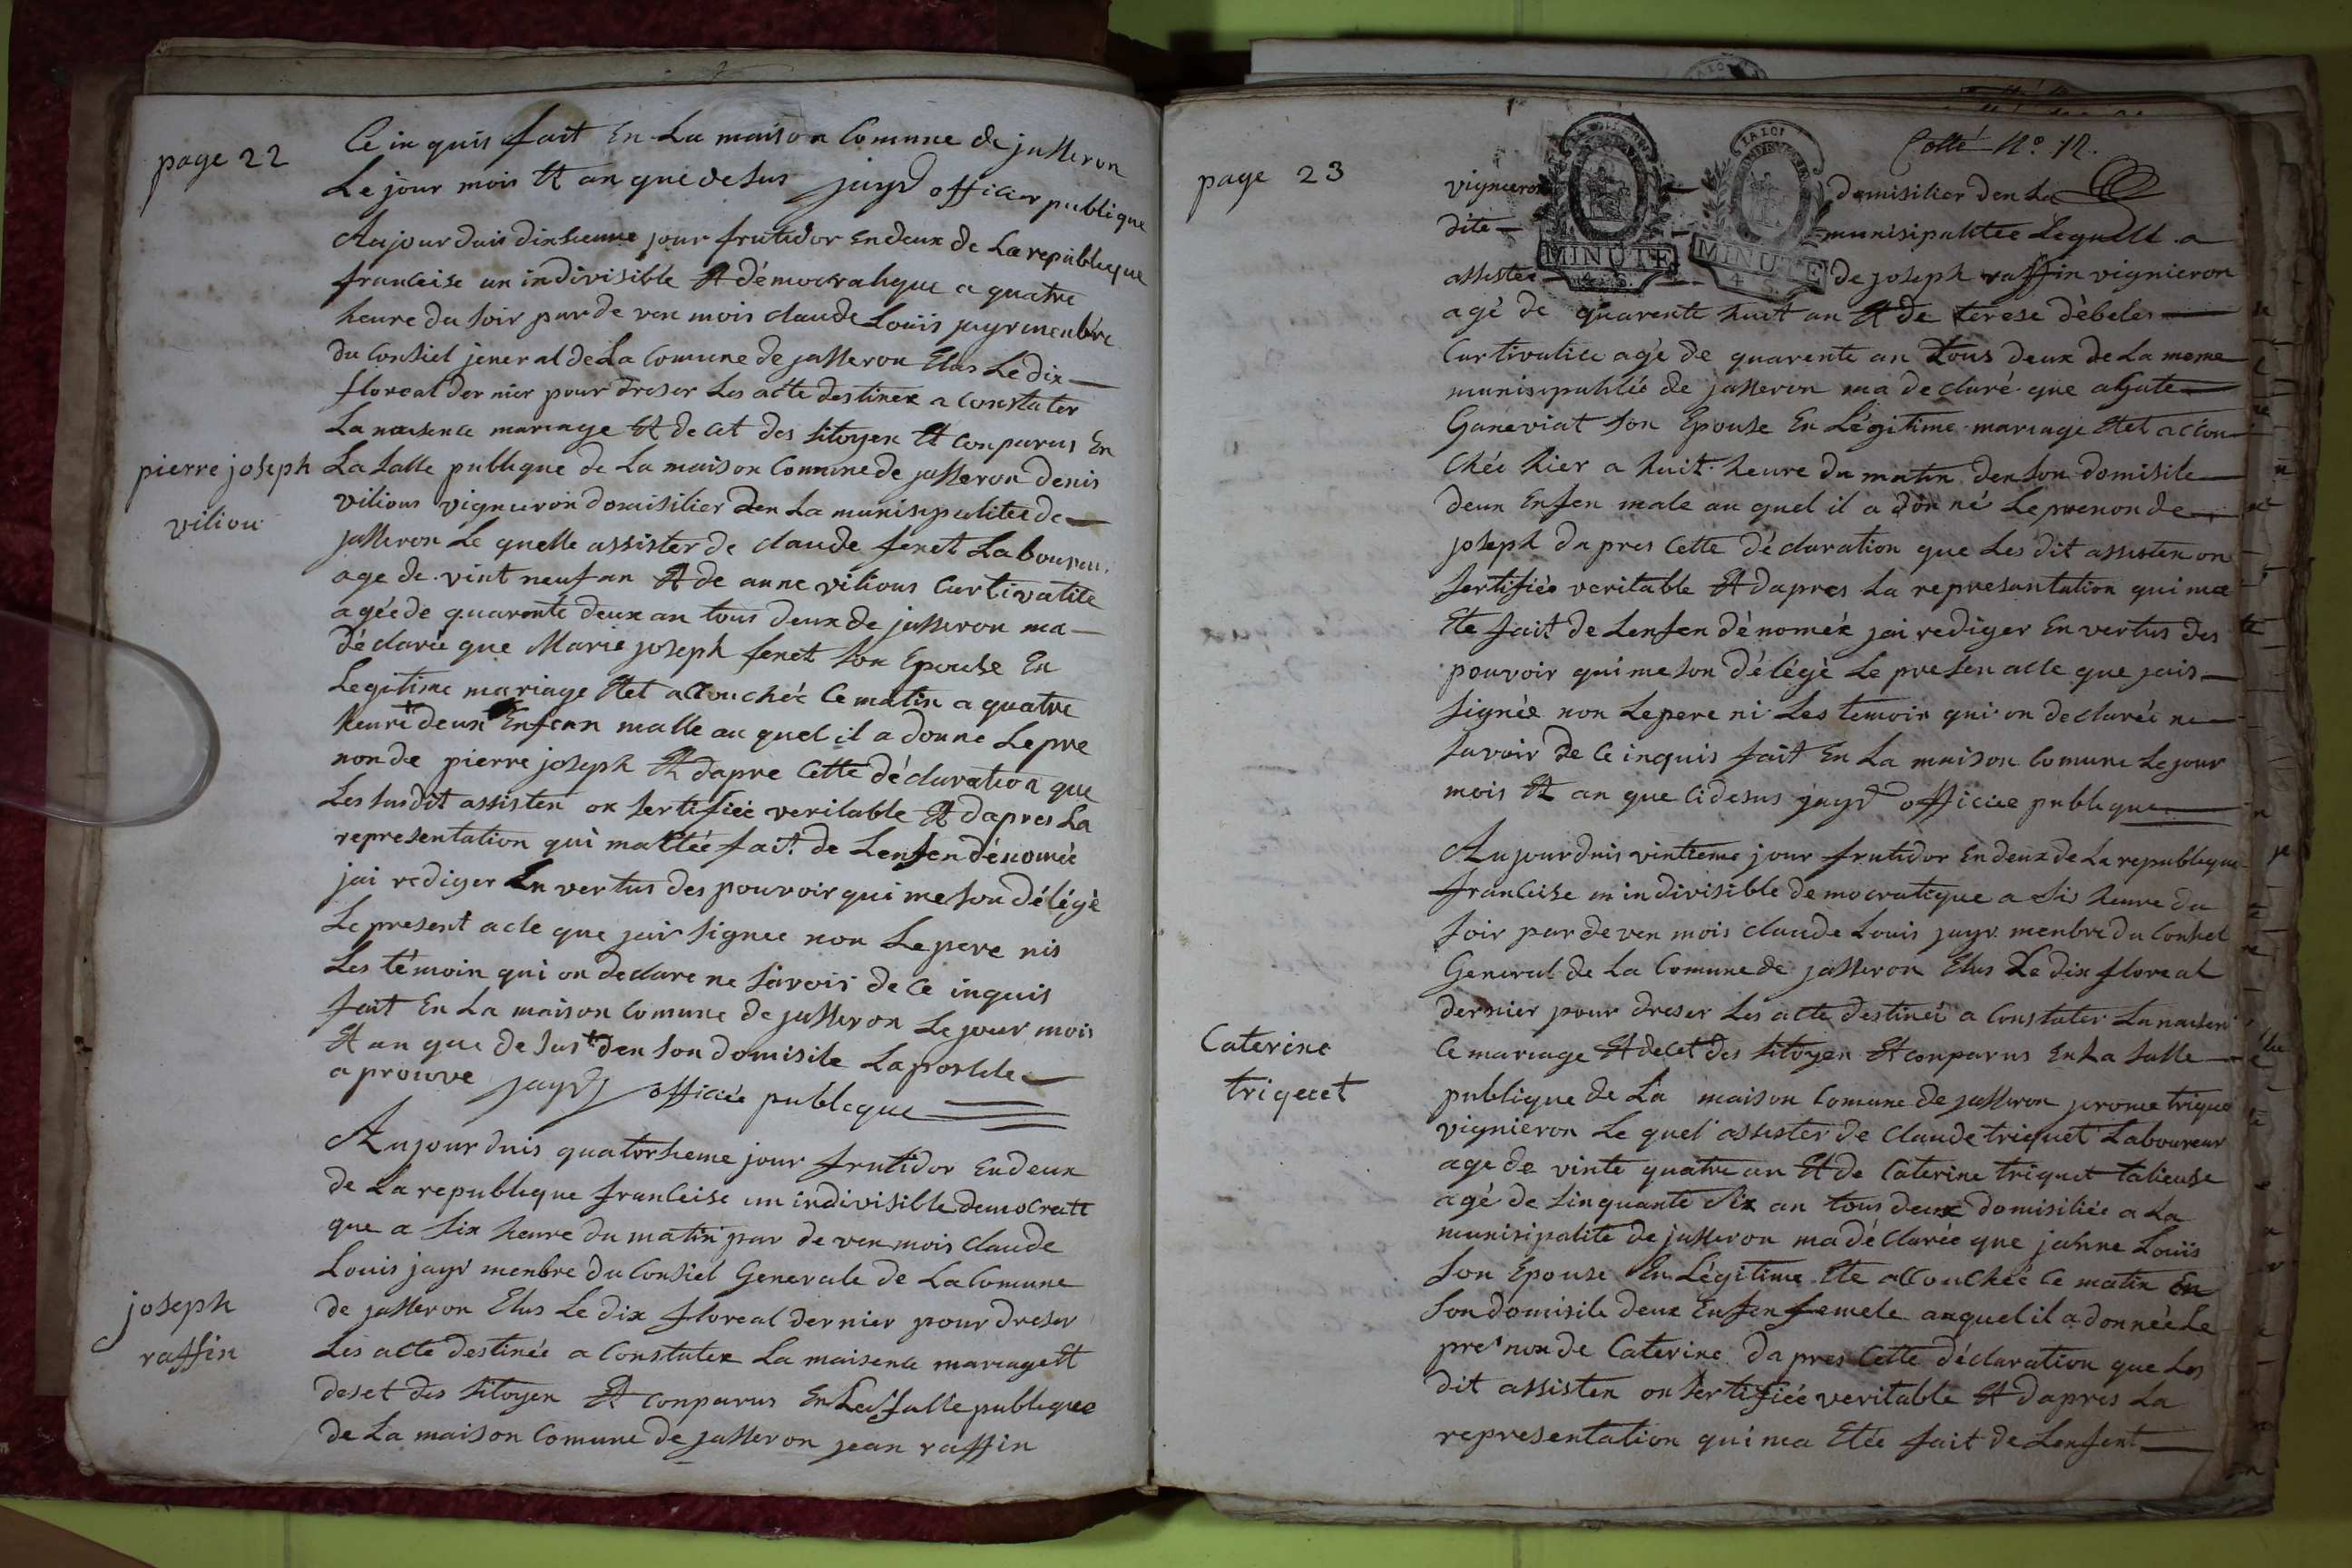 page 22
Ce in quis fait En La maison Comune de jasseron
Le jour mois Et an que desus jayr officier publique
Aujourduis dixhieme jour frutidor Endeux de La republique
franceise un indivisible Et démocratique a quatre
heure du soir par de ven mois claude Louis jayr menbre
Du Consiel jeneral de La Comune de jasseron Elus Le dix
floreal der nier pour dreser Les acte destinex a Constater
La naisence mariage Et de cet des sitoyen Et conparus En
pierre joseph
viliou
La salle publique de La maison Comune de jasseron denis
vilious vigneron domisilier den La munisipalitée de
jasseron Le quelle assister de claude feret Laboureur
age de vint neuf an Et de anne vilious Curtivatile
agée de quarente deux an tous deux de jasseron ma
déclarée que Marie joseph feret son Epouse En
Legitime mariage Etet accouchée Ce matin a quatre
heure deux Enfenn malle au quel il a donne Le pre
non de pierre joseph Et dapre Cette déclaration que
Les susdit assisten on sertifiée veritable Et dapres La
representation qui mattée fait de Lenfen dénomée
jai rediger En vertus des pouvoir qui me son délégé
Le present acte que jais signee non Le pere nis
Les témoin qui on declare ne savoir de Ce inquis
fait En La maison Comune de jasseron Le jour mois
Et an que de sus den son domisile La postile
a prouve jayr officiée publique
Aujourduis quatorsieme jour frutidor Endeux
de La republique franceise un indivisible democrati
que a six heure du matin par de ven mois claude
Louis jayr menbre du Consiel Generale de La Comune
joseph
raffin
de jasseron Elus Le dix floreal dernier pour dreser
Les acte destinée a Constatex La naisence mariage Et
deset des sitoyen Et conparus En La salle publique
de La maison Comune de jasseron jean raffin
page 23
Cotté N° 12.
vigneron domisilier den La
dite munisipalitée Lequelle a
assistée de joseph raffin vignieron
MINUTE
MINUTE
agé de quarente huit an Et de terese débeles
Curtivatile agé de quarente an tous deux de La meme
munisipalitée de jasseron ma declaré que agate
Ganeviat son Epouse En Légitime mariage Etet accou
chée hier a huit heure du matin den son domisile
deun Enfen male au quel il a donné Le prenon de
joseph dapres Cette déclaration que Les dit assisten on
sertifiée veritable Et dapres La represantation qui ma
Ete fait de Lenfen dénomée jai rediger En vertus des
pouvoir qui me son délégé Le presen acte que jais
signée non Le pere ni Les temoin qui on declarée ne
savoir de Ce inquis fait En La maison Comune Le jour
mois Et an que cidesus jayr officiée publique
Aujourduis vintieme jour frutidor Endeux de La republique
franceise un indivisible democratique a sis heure du
soir par de ven mois claude Louis jayr menbre du Consiel
General de La Comune de jasseron Elus Le dix floreal
dernier pour dreser Les acte destinéé a Constater La naisen
Caterine
triqeuet
Ce mariage Et decet des sitoyen Et conparus En La salle
publique de La maison Comune de jasseron jerome trique
vignieron Le quel assister de Claude triquet Laboureur
age de vinte quatre an Et de Caterine triquet talieuse
agé de sinquante six an tous deux domisiliée a La
munisipalité de jasseron ma déclarée que jahne Louis
son Epouse En Légitime Ete accouchée Ce matin En
son domisile deux Enfen femele auquel il a donnée Le
pre non de Caterine dapres Cette déclaration que Les
dit assisten on sertifiée veritable Et dapres La
representation qui ma Etée fait de Lenfent